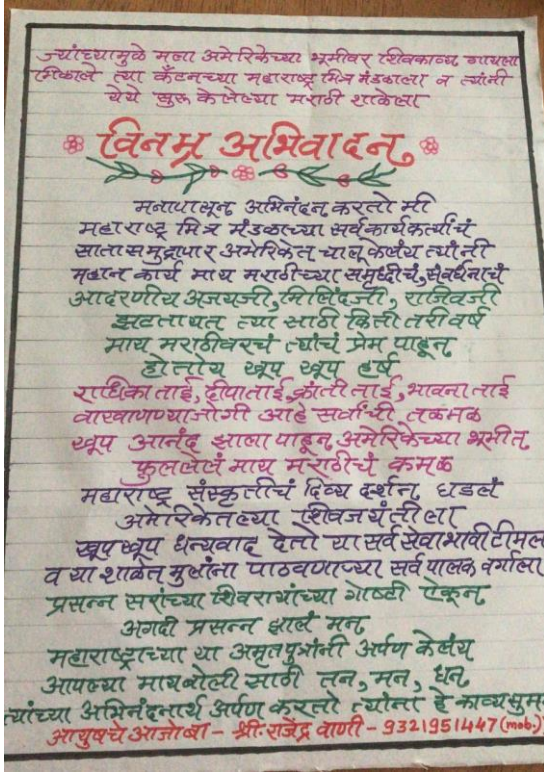 ज्यांच्यामुळे मला अमेरिकेच्या भूमीवर शिवकाव्य गायला
मिळाले त्या कँटनच्या महाराष्ट्र मित्र मंडळाला व त्यांनी
येथे सुरू केलेल्या मराठी शाळेला
विनम्र अभिवादन
मनापासून अभिनंदन करतो मी
महाराष्ट्र मित्र मंडळाच्या सर्व कार्यकर्त्यांचं
साता समुद्रापार अमेरिकेत चालू केलंय त्यांनी
महान कार्य माय मराठीच्या समृध्दीचं, संवर्धनाचं
आदरणीय अजयजी, मिलिंदजी, राजिवजी
झटतायत त्या साठी किती तरी वर्ष
माय मराठीवरचं त्यांचं प्रेम पाहून
होतोय खूप खूप हर्ष
राधिका ताई, दीपाताई, क्रांती ताई, भावना ताई
वाखाणण्याजोगी आहे सर्वांची तळमळ
खूप आनंद झाला पाहून अमेरिकेच्या भूमीत
फुललेलं माय मराठीचं कमळ
महाराष्ट्र संस्कृतीचं दिव्य दर्शन घडलं
अमेरिकेतल्या शिवजयंतीला
खूप खूप धन्यवाद देतो या सर्व सेवाभावी टीमला
व या शाळेत मुलांना पाठवणाऱ्या सर्व पालक वर्गाला
प्रसन्न सरांच्या शिवरायांच्या गोष्टी ऐकून
अगदी प्रसन्न झालं मन
महाराष्ट्राच्या या अमृतपुत्रांनी अर्पण केलंय
आपल्या मायबोली साठी तन, मन, धन
त्यांच्या अभिनंदनार्थ अर्पण करतो त्यांना हे काव्यसुमन
आयुषचे आजोबा - श्री. राजेंद्र वाणी - 9321951447 (mob.)